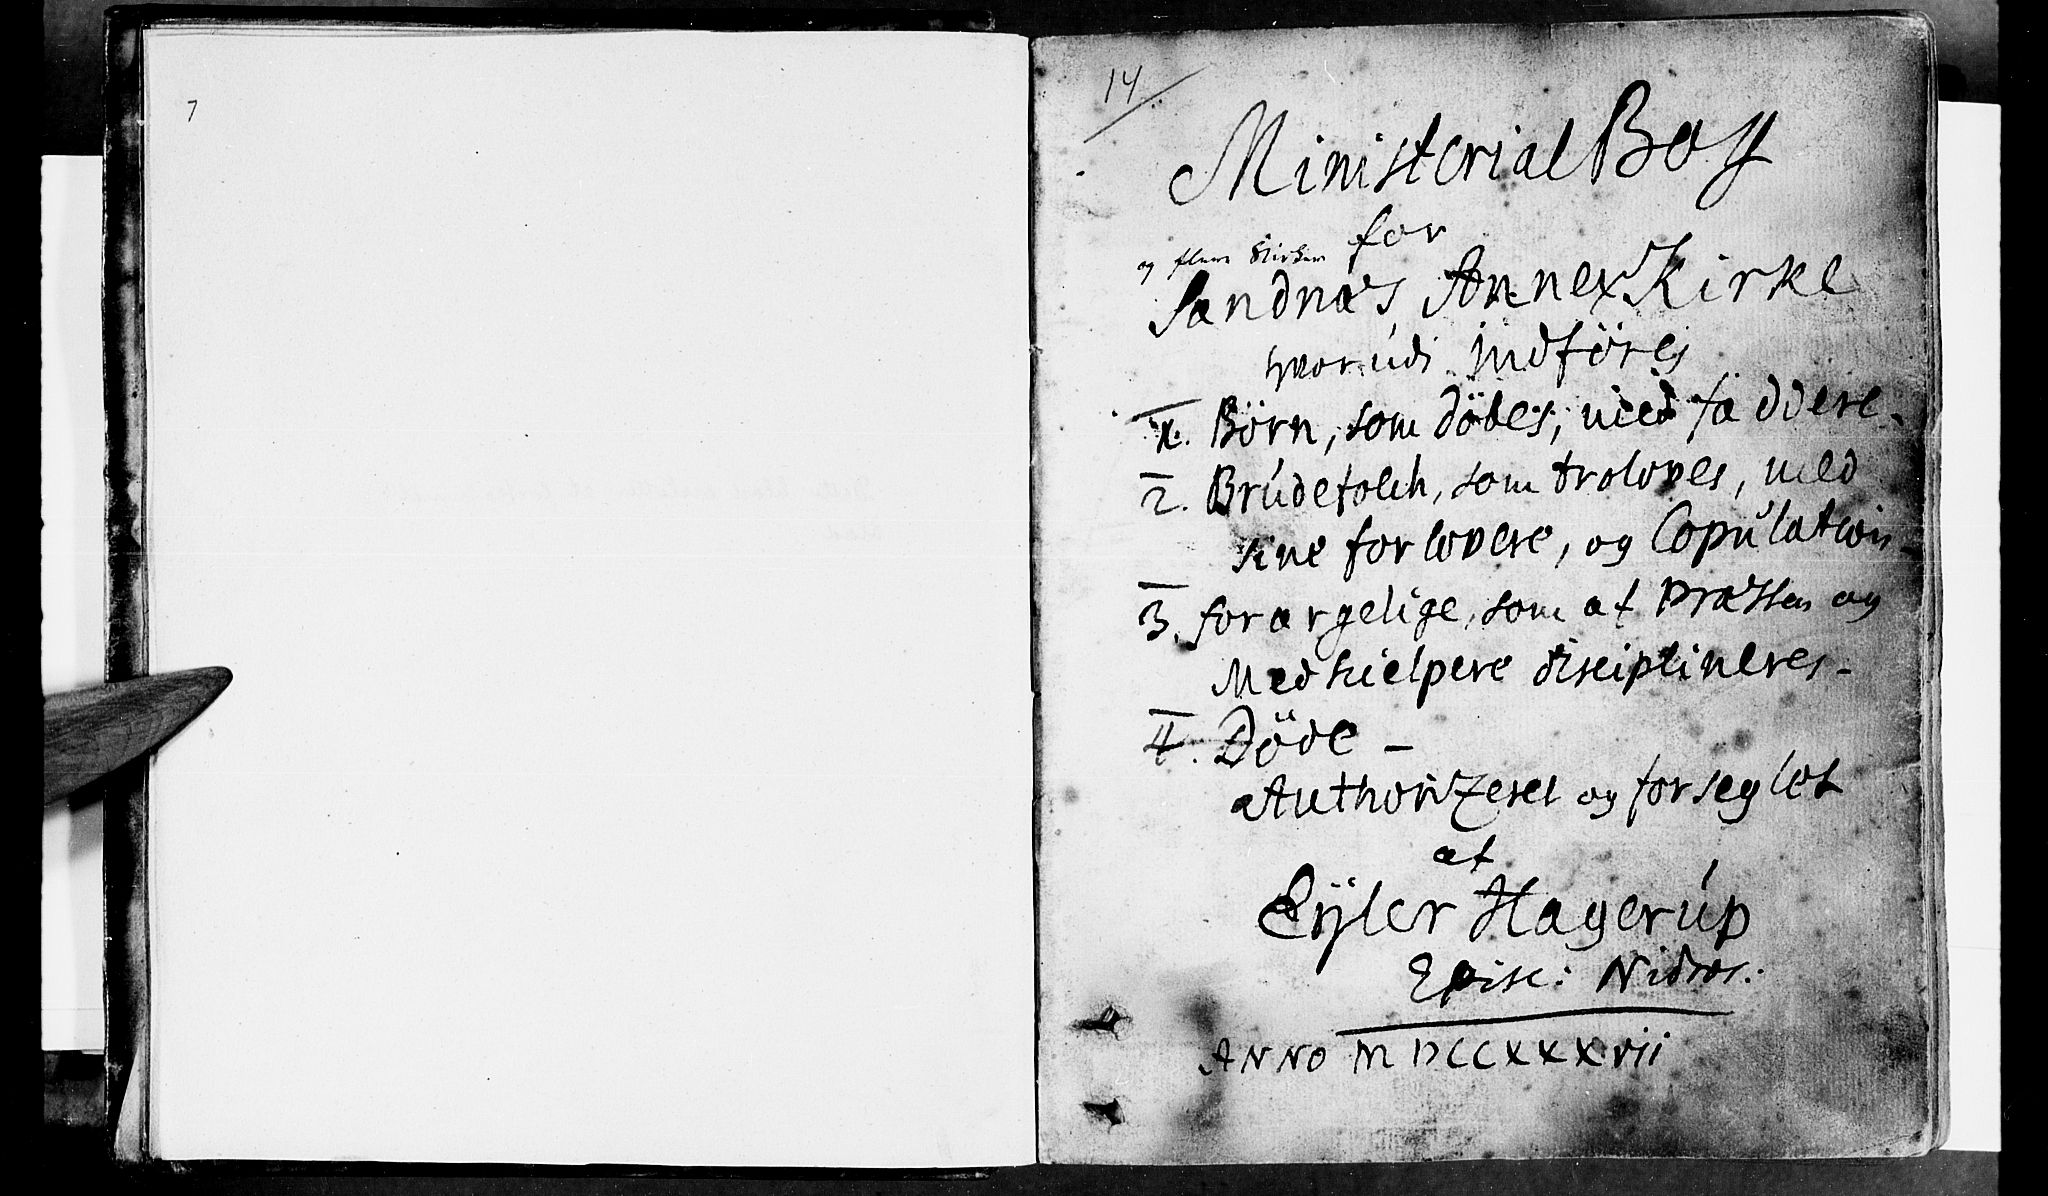 7
14
Ministerial Bog
for
og flere Kirker
Sandnæs Annex Kirke
hvorudi indföres
1. Börn, som döbes, med faddere.
2. Brúdefolch, som troloves, med
sine forlovere, og Copúlation.
3. forargelige, som af Præsten og
Medhielpere disciplineres.
4. Döde –
Authorizeret og forseglet
af
Eÿler Hagerúp
Episc: Nidros:
ANNO MDCCXXXvii